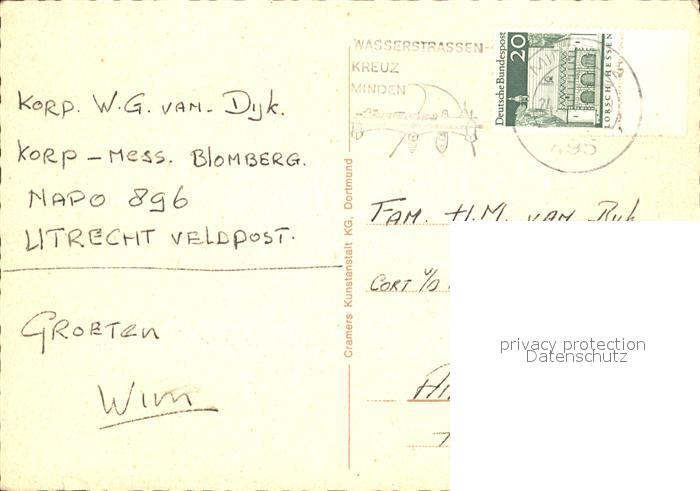 KORP. W.G. VAN. Dijk.
KORP – MESS. BLOMBERG.
NAPO 896
UTRECHT VELDPOST.
GROETEN
Wim
Cramers Kunstanstalt KG, Dortmund
WASSERSTRASSEN-
KREUZ
MINDEN
Deutsche Bundespost
20
LORSCH/HESSEN
495
FAM. H.M. VAN
CORT V/D
privacy protection
Datenschutz